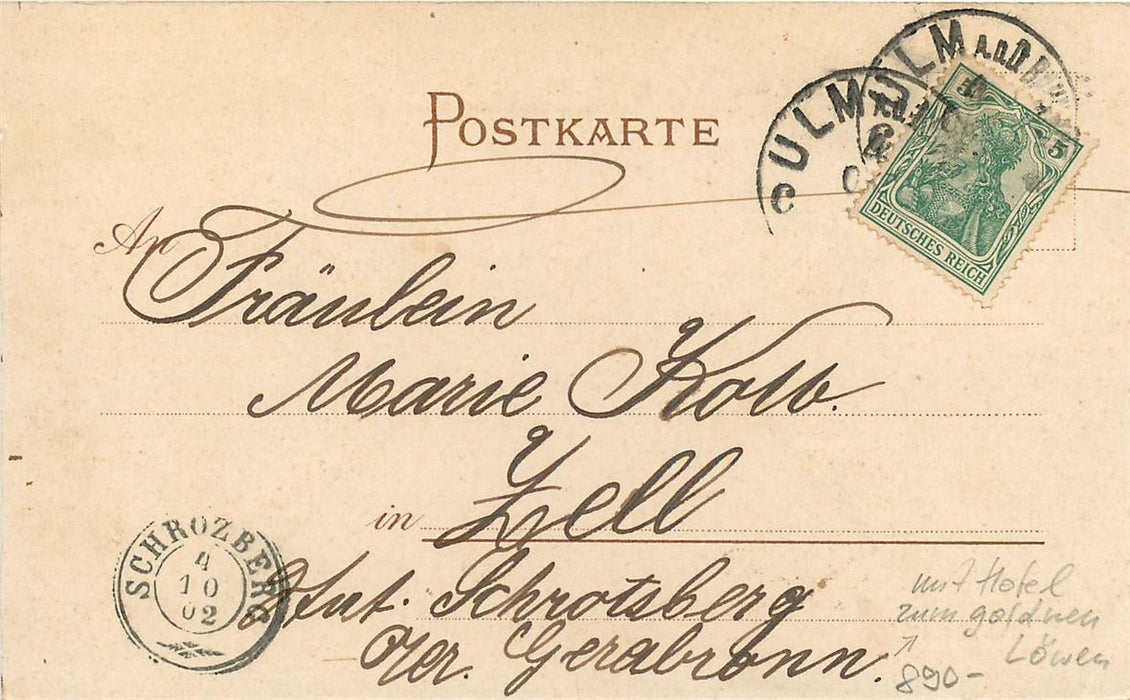 POSTKARTE
ULM A.D.
ULM
5 5
DEUTSCHES REICH
An
Fräulein
Marie Kolb.
in Zell
SCHROZBERG
4
10
02
Schrotsberg
Gerabronn.
mit Hotel
zum goldnen
Löwen
890-